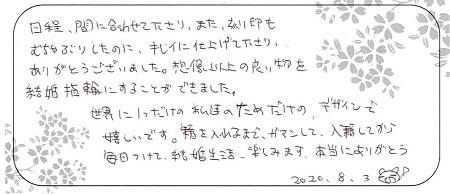 日程、間に合わせて下さり、また、刻印も
むちゃぶりしたのに、キレイに仕上げて下さり、
ありがとうございました。想像以上の良い物を
結婚指輪にすることができました。
世界に1つだけの私達のためだけの、デザインで
嬉しいです。籍を入れるまで、ガマンして、入籍してから
毎日つけて、結婚生活、楽しみます。本当にありがとう
2020.8.3